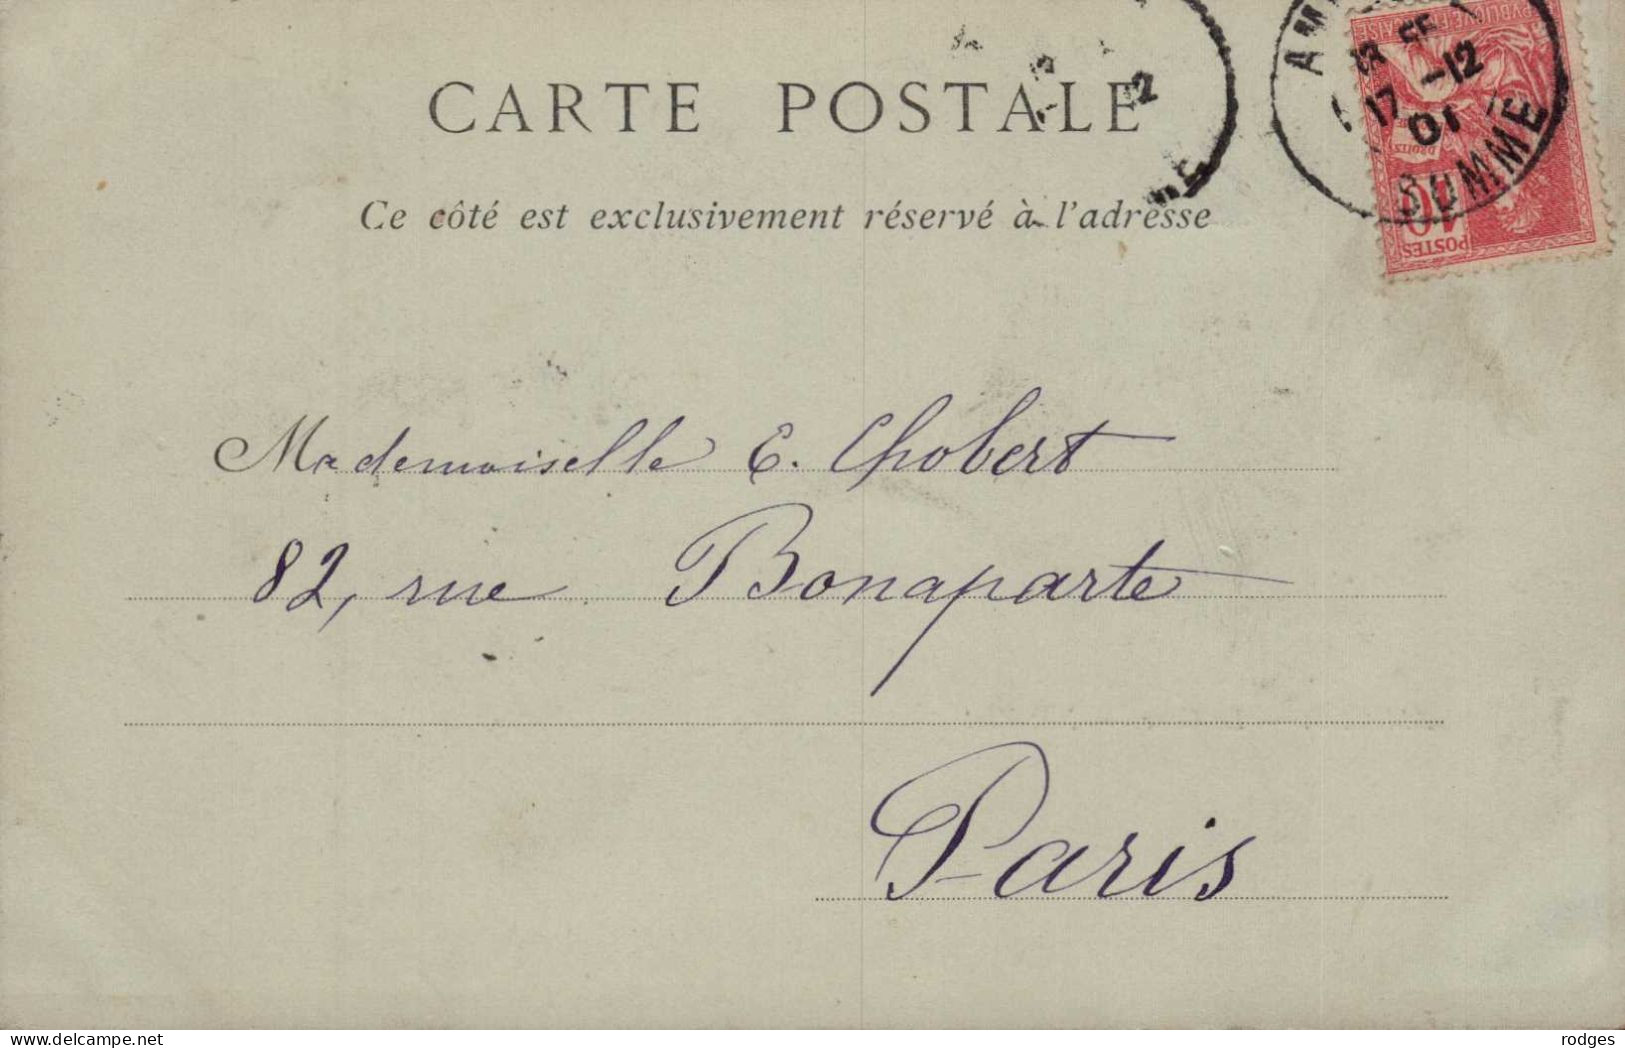 CARTE POSTALE
Ce côté est exclusivement réservé à l'adresse
Mademoiselle E. Chobert
82, rue Bonaparte
Paris
17 -12
01
SOMME
12
POSTES
10
https://www.delcampe.net
rodges